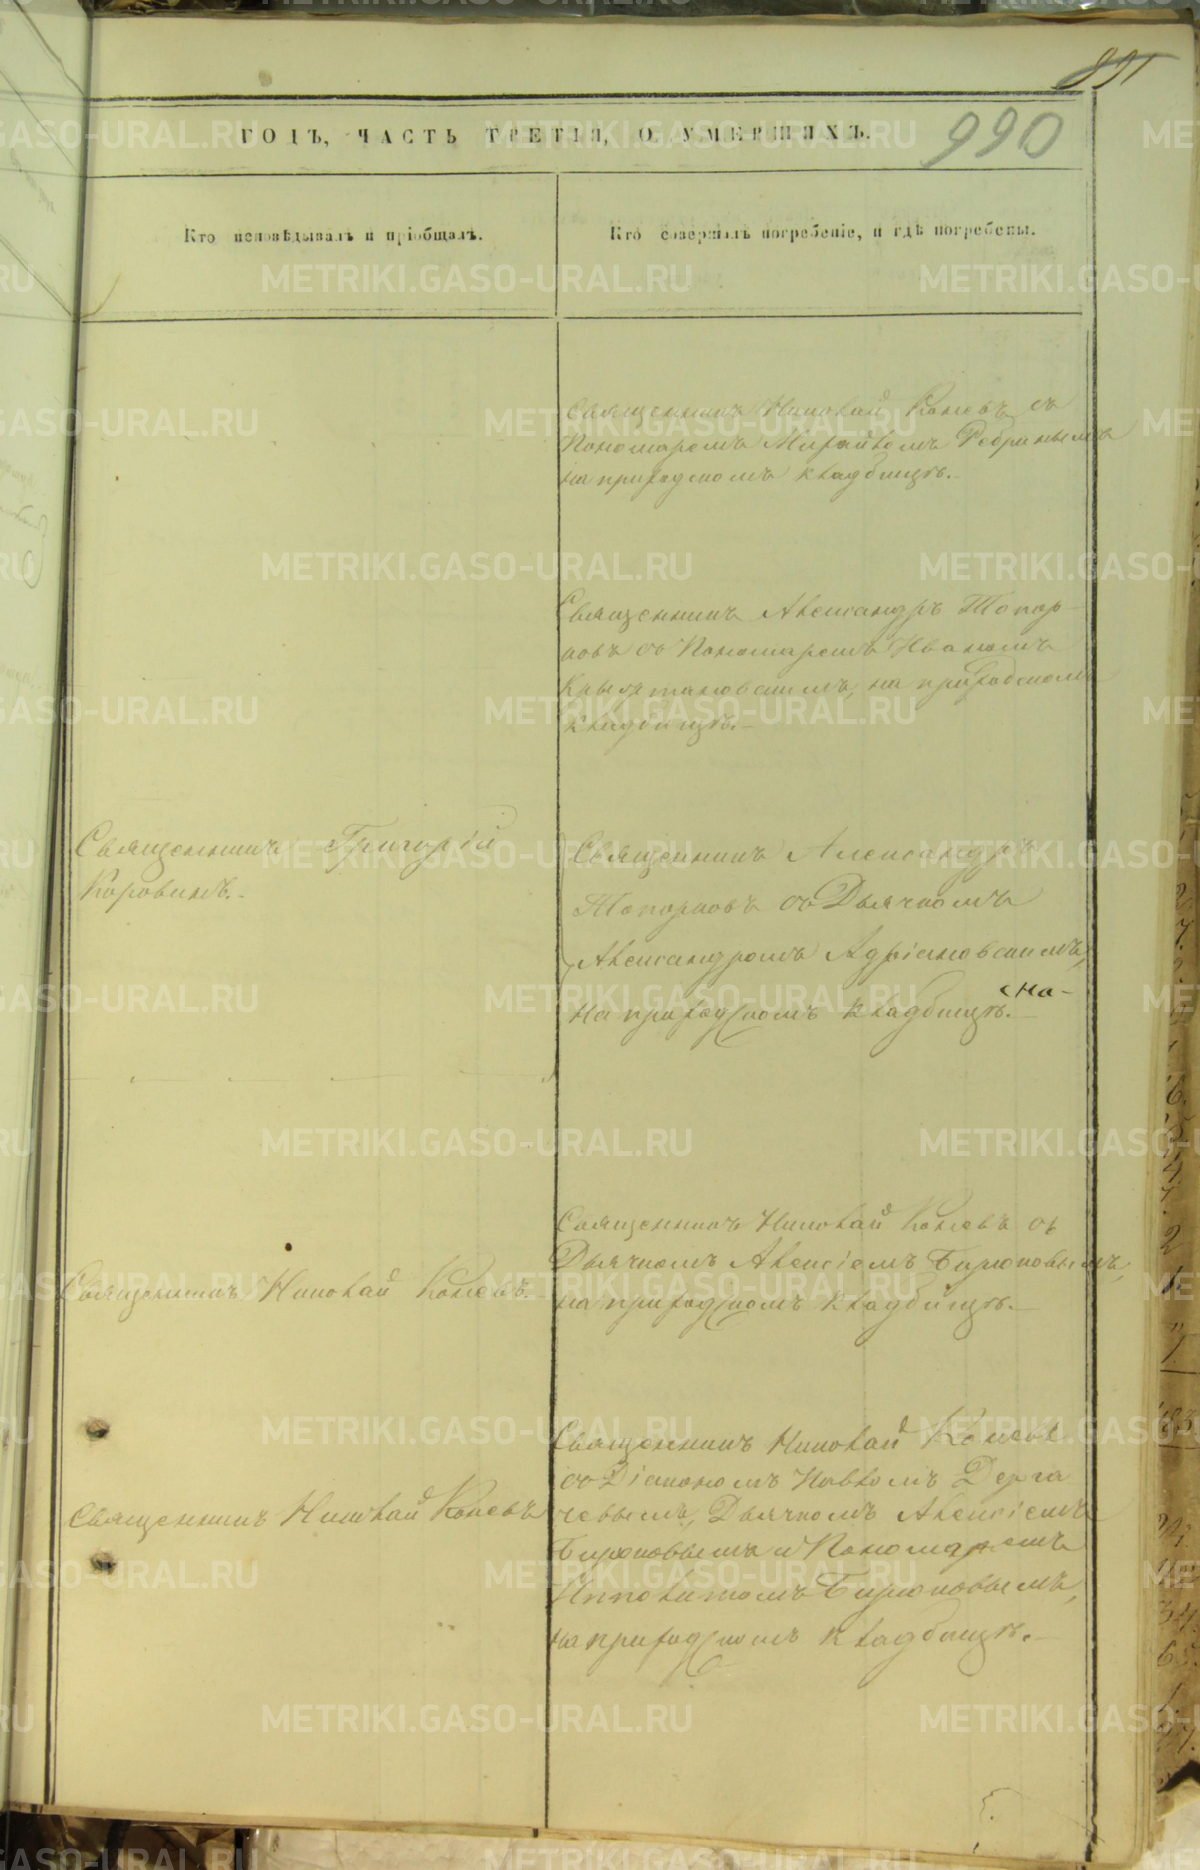 990
ГОДЪ, ЧАСТЬ ТРЕТІЯ, О УМЕРШИХЪ.
Кто исповѣдывалъ и пріобщалъ.
Кто совершилъ погребеніе, и гдѣ погребены.
Священникъ Николай Коневъ съ
Пономаремъ Михайломъ Ребринымъ
на приходскомъ кладбищѣ.
Священникъ Александръ Топор-
ковъ съ Пономаремъ Иваномъ
на приходскомъ
кладбищѣ.
Священникъ Григорій
Коровинъ.
Священникъ Александръ
Топорковъ съ Дьячкомъ
Александромъ Адріановскимъ,
на приходскомъ кладбищѣ.
На-
Священникъ Николай Коневъ.
Священникъ Николай Коневъ съ
Дьячкомъ Алексіемъ Бирюковымъ,
на приходскомъ кладбищѣ.
Священникъ Николай Коневъ
Священникъ Николай Коневъ
съ Діакономъ Павломъ Дерга
чевымъ, Дьячкомъ Алексіемъ
Бирюковымъ и Пономаремъ
Ипполитомъ Бирюковымъ,
на приходскомъ кладбищѣ.
METRIKI.GASO-URAL.RU